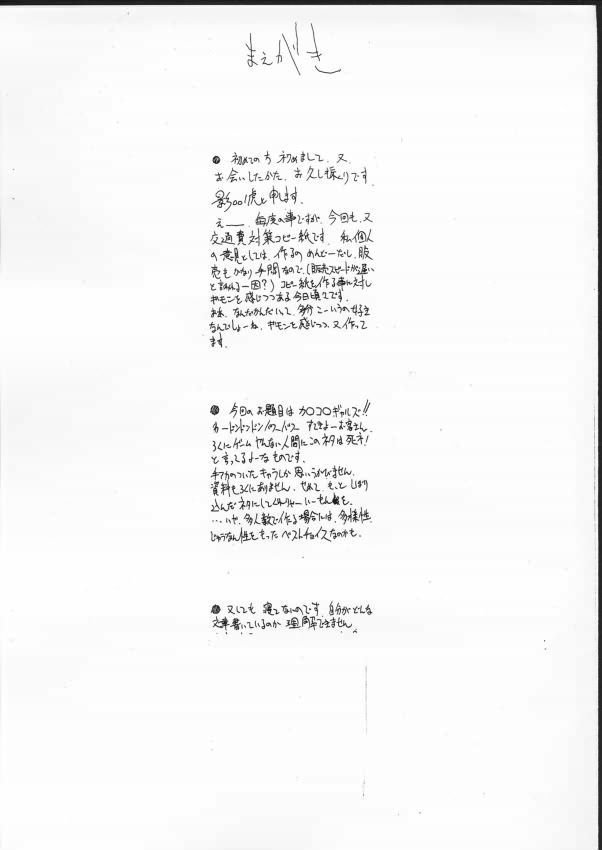 まえがき
● 初めての方 初めまして、又、
お会いしたかた、お久し振りです。
影001虎と申します。
え——、毎度の事ですが、今回も、又
交通費対策コピー紙です。私個人
の意見としては、作るの めんどーだし、販
売も かなり手間なので、(販売スピードが遅い
と言われる一因?) コピー紙を作る事に対し
ギモンを感じつつある今日頃です。
まあ、なんだかんだいって、こーいうの好き
なんでしょーね、ギモンを感じつつ、又作って
ます。
● 今回のお題目は カ〇コ〇ギャルズ!!
すてきよーお客さん。
ろくにゲーム やんない人間にこのネタは 死ネ!
と言ってるよーな ものです。
手アカのついた キャラしか 思いうかびません。
資料もろくにありません。せめて、もっと しぼり
込んだ ネタにしてくれりゃー いーもんを。
…いや、多人数で作る場合には、多様性、
じゅうなん性をもった ベストチョイスなのかも。
● 又しても 寝てないのです。自分がどんな
文章書いているのか 理解できません